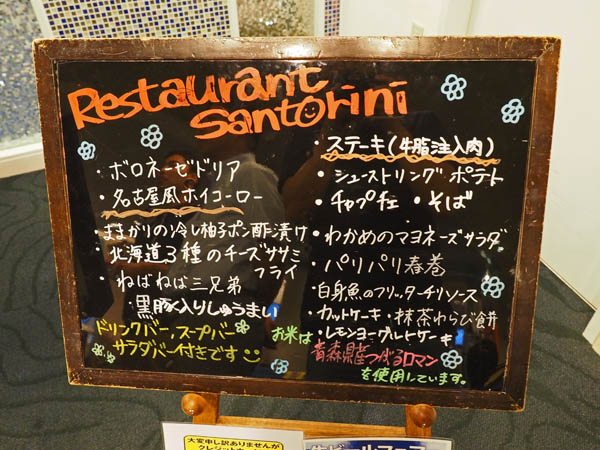 Restaurant
Santorini
・ボロネーゼドリア
・名古屋風ホイコーロー
・ままかりの冷し柚子ポン酢漬け
・北海道3種のチーズササミ
フライ
・ねばねば三兄弟
・黒豚入りしゅうまい
ドリンクバー、スープバー
サラダバー付きです
・ステーキ(牛脂注入肉)
・シューストリングポテト
・チャプチェ ・そば
・わかめのマヨネーズサラダ
・パリパリ春巻
・白身魚のフリッターチリソース
・カットケーキ・抹茶わらび餅
・レモンヨーグルトケーキ
お米は
青森県産つがるロマン
を使用しています。
大変申し訳ありませんが